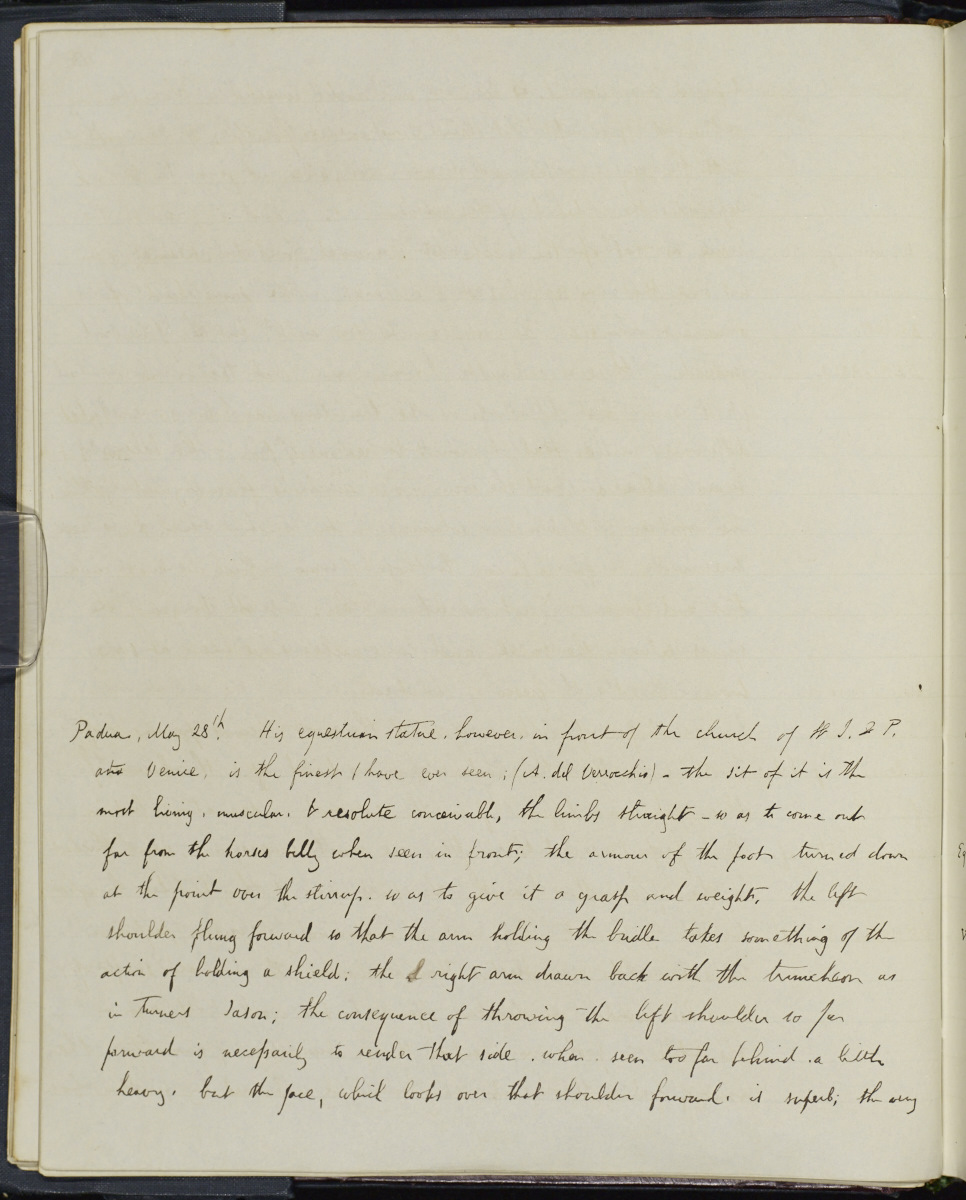 Padua, May 28th. His equestrian statue, however, in front of the church of St J. & P.
and Venice, is the finest I have ever seen; (A. del Verrocchio) - the sit of it is the
most living, muscular, & resolute conceivable, the limbs straight - so as to come out
far from the horses belly when seen in front; the armour of the foot turned down
at the point over the stirrup. so as to give it a grasp and weight, the left
shoulder flung forward so that the arm holding the bridle takes something of the
action of holding a shield; the right arm drawn back with the truncheon as
in Turners Jason; the consequence of throwing the left shoulder so far
forward is necessarily to render that side, when seen too far behind, a little
heavy. but the face, which looks over that shoulder forward, is superb; the